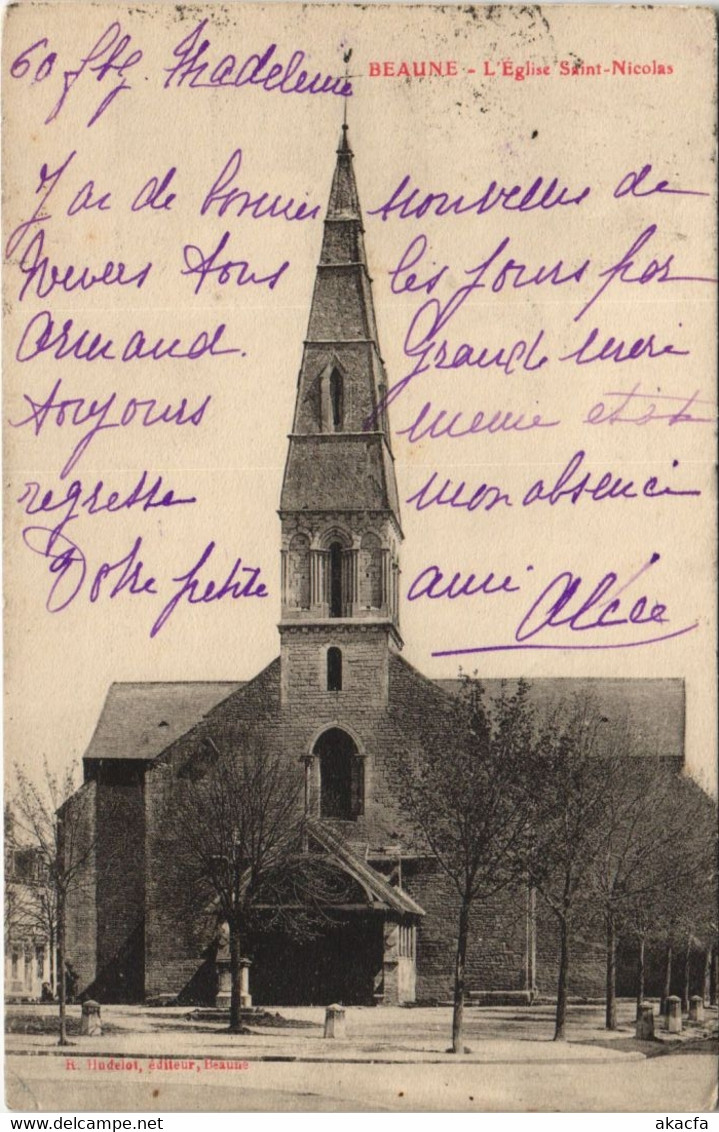 BEAUNE - L'Église Saint-Nicolas
60 fbg Madeleine
J'ai de bonnes nouvelles de
Nevers tous les jours par
Armand. Grand mère
toujours même et
regrette mon absence
Votre petite amie Alice
R. Hudelot, éditeur, Beaune
akacfa
www.akacfa.com